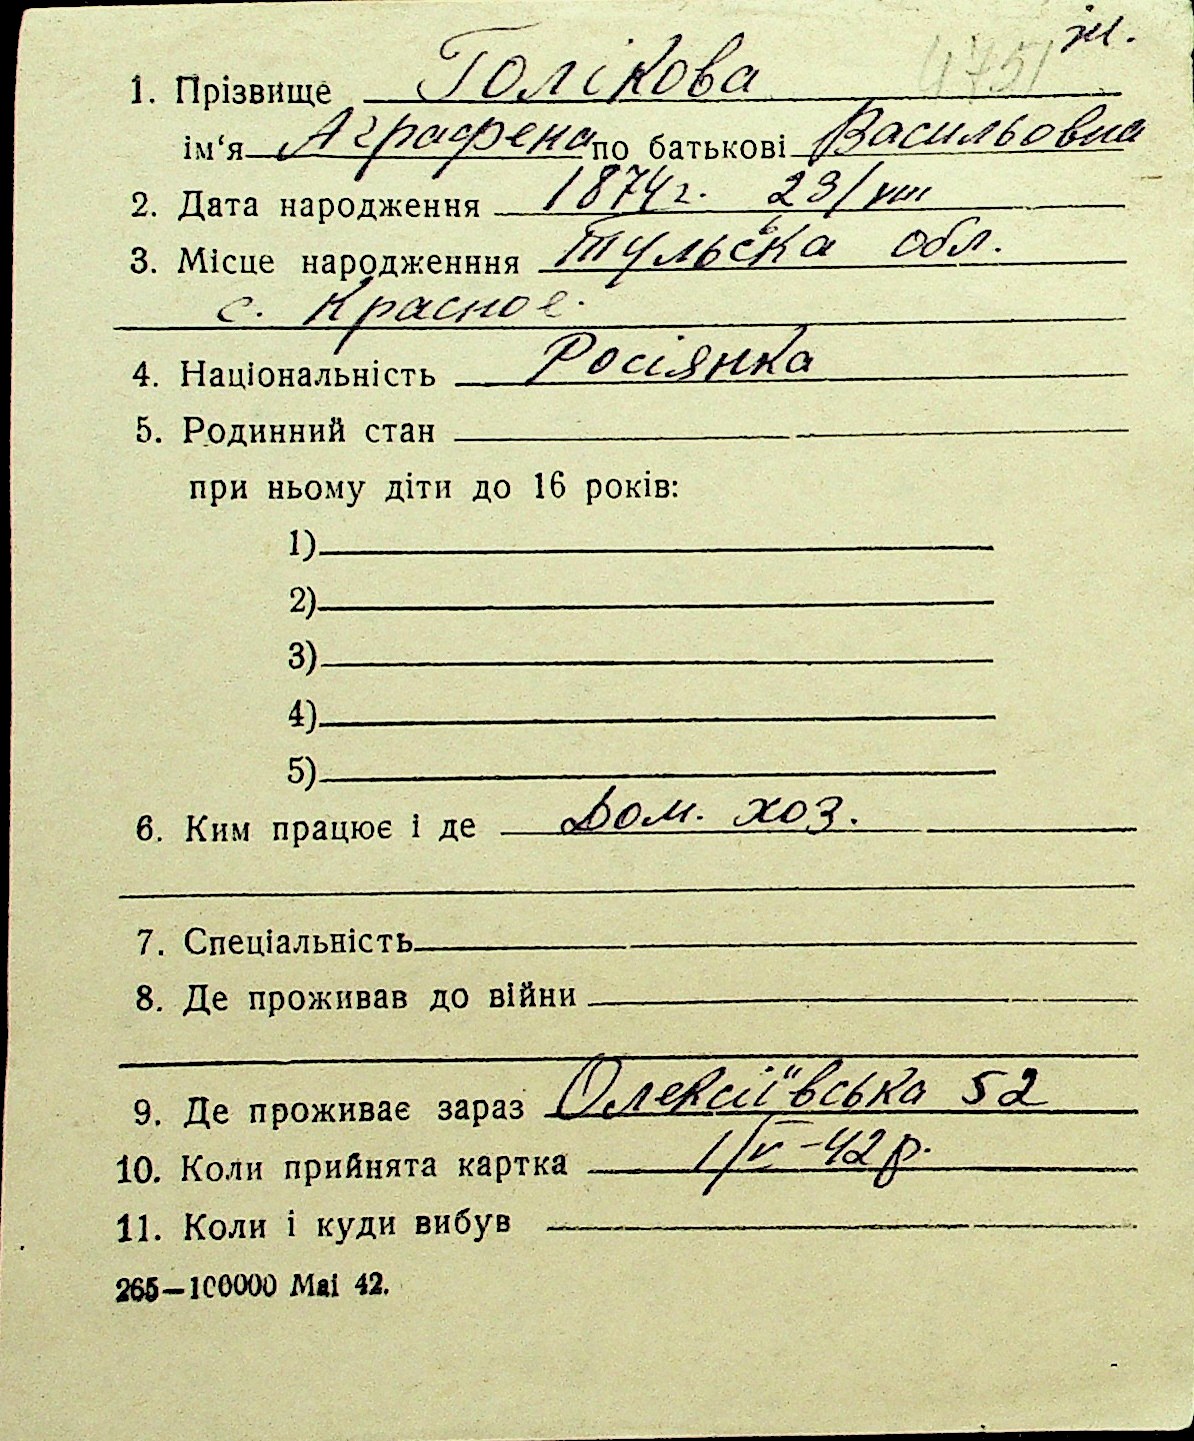 ж.
4751
1. Прізвище Голікова
ім'я Аграфена по батькові Васильовна
2. Дата народження 1874 г. 23/VIII
3. Місце народженння Тульська обл.
с. Красное.
4. Національність Росіянка
5. Родинний стан
при ньому діти до 16 років:
1)
2)
3)
4)
5)
6. Ким працює і де Дом. хоз.
7. Спеціальність
8. Де проживав до війни
9. Де проживає зараз Олексіївська 52
10. Коли прийнята картка 1/V-42 р.
11. Коли і куди вибув
265—100000 Mai 42.